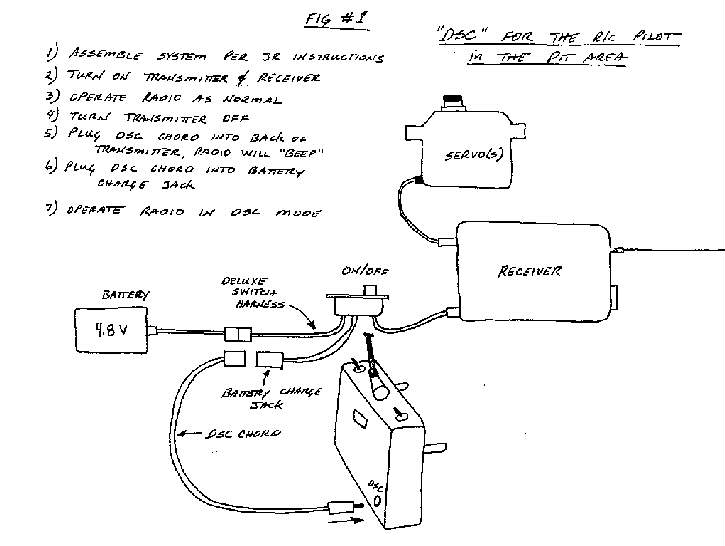 FIG #1
"DSC" FOR THE R/C PILOT
IN THE PIT AREA
1) ASSEMBLE SYSTEM PER JR INSTRUCTIONS
2) TURN ON TRANSMITTER & RECEIVER
3) OPERATE RADIO AS NORMAL
4) TURN TRANSMITTER OFF
5) PLUG DSC CHORD INTO BACK OF
TRANSMITTER, RADIO WILL "BEEP"
6) PLUG DSC CHORD INTO BATTERY
CHARGE JACK
7) OPERATE RADIO IN DSC MODE
SERVO(S)
RECEIVER
ON/OFF
DELUXE
SWITCH
HARNESS
BATTERY
4.8 V
BATTERY CHARGE
JACK
DSC CHORD
DSC